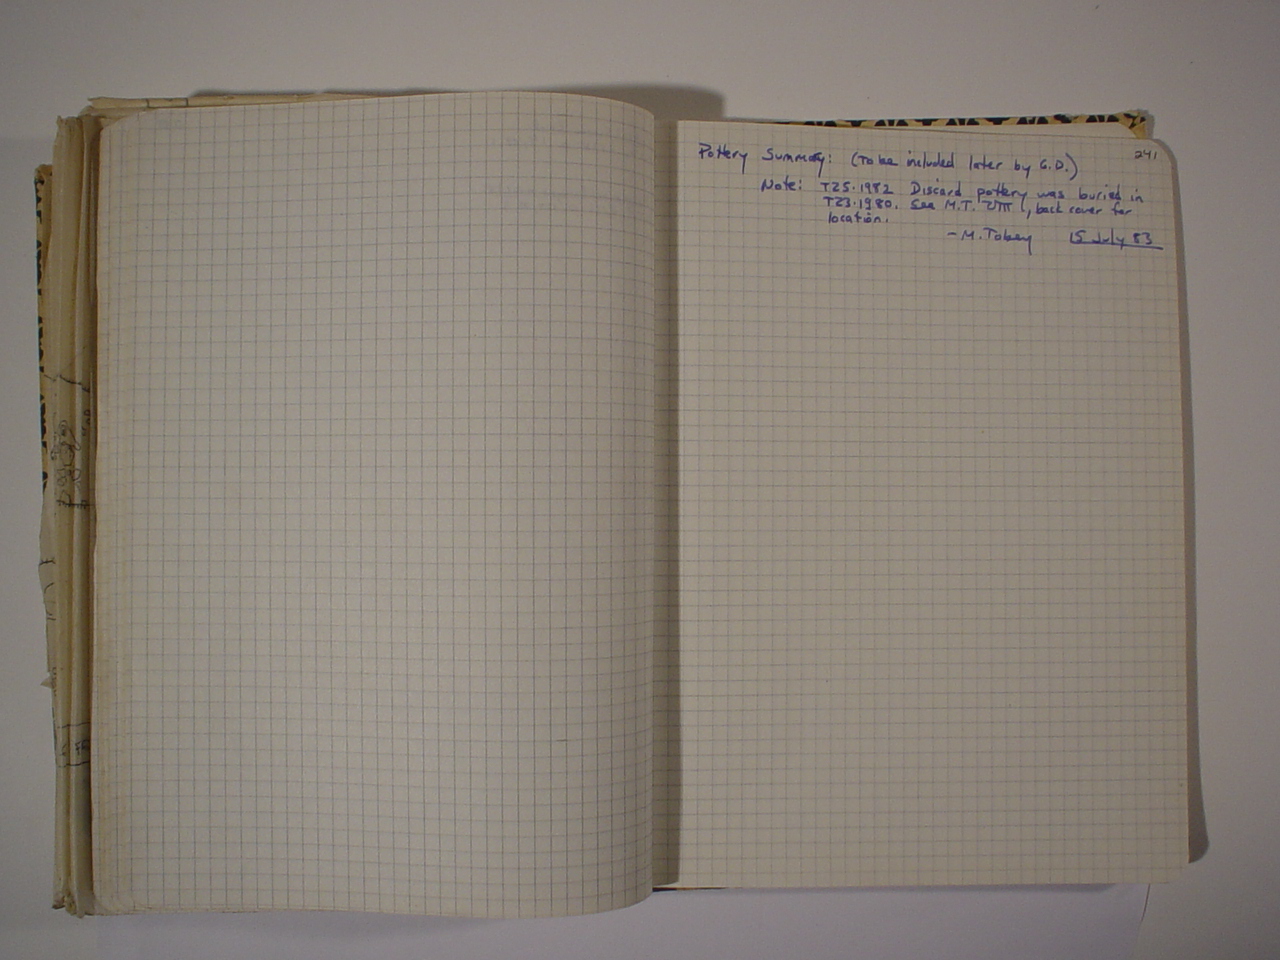 241
Pottery Summary: (To be included later by G.D.)
Note: T25.1982 Discard pottery was buried in
T23.1980. See M.T. VIII, back cover for
location.
- M. Tobey 15 July 83